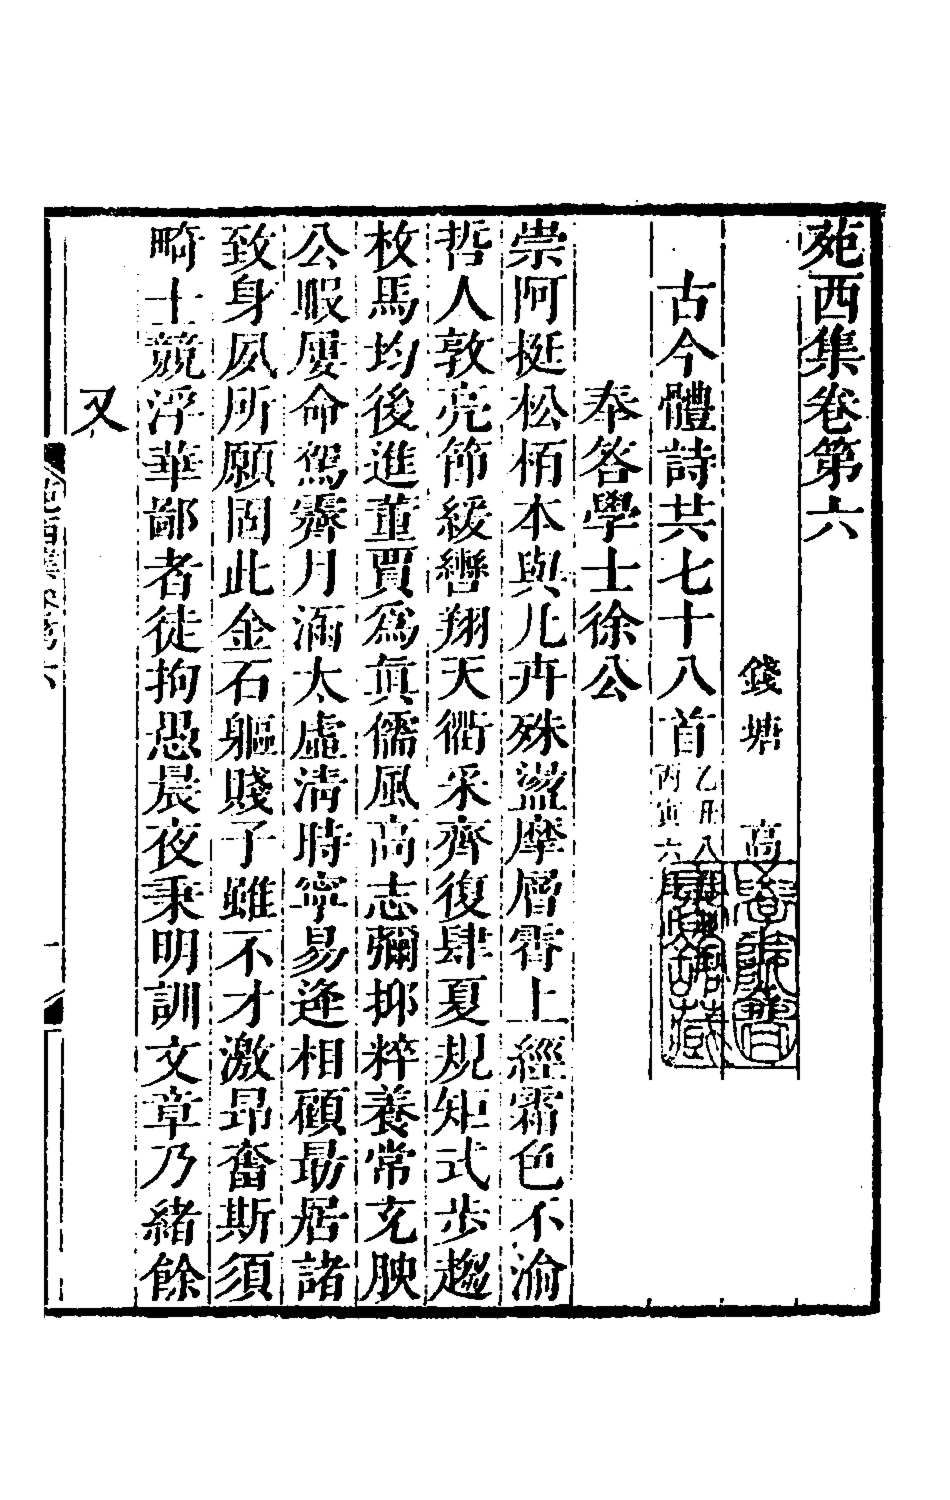 苑西集卷第六
錢塘　高
古今體詩共七十八首乙丑八
丙寅六
奉答學士徐公
崇阿挺松栢本與凡卉殊盪摩層霄上經霜色不渝
哲人敦亮節緩轡翔天衢采齊復肆夏規矩式步趨
枚馬均後進董賈爲真儒風高志彌抑粹養常充腴
公暇屢命駕霽月滿太虛清時寧易逢相顧勗居諸
致身夙所願固此金石軀賤子雖不才激昂奮斯須
畸士競浮華鄙者徒拘愚晨夜秉明訓文章乃緒餘
又
苑西集卷第六
一